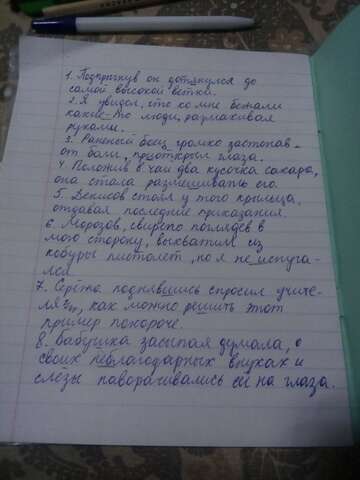 1. Подпрыгнув он дотянулся до
самой высокой ветки.
2. Я увидел, что ко мне бежали
какие-то люди, размахивая
руками.
3. Раненый боец громко застонав
от боли, приоткрыл глаза.
4. Положив в чай два кусочка сахара,
она стала размешивать его.
5. Денисов стоял у того крыльца,
отдавая последние приказания.
6. Морозов, свирепо поглядев в
мою сторону, выхватил из
кобуры пистолет, но я не испуга-
лся.
7. Серёжа поднявшись спросил учите-
ля, как можно решить этот
пример покороче.
8. Бабушка засыпая думала, о
своих неблагодарных внуках и
слёзы наворачивались ей на глаза.